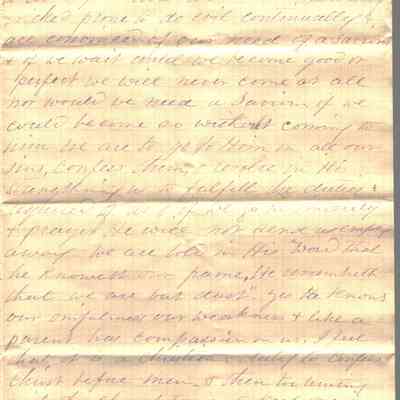 prone to do evil continually &
are convinced of our need of a Saviour
& if we wait until we become good or
perfect we will never come at all
nor would we need a Saviour if we
could become so without coming to
him we are to go to Him in all our
sins, confess them, & in His
strengthening us to fulfill the duties
required of us & if we go in
& prayer He will not send us empty
away. We are told in His "Word that
he knoweth our frame, He remembereth
that we are but dust". Yes He knows
our sinfulness our weakness & like a
parent has compassion on us. I feel
that it is a Christian duty to confess
Christ before men, & then